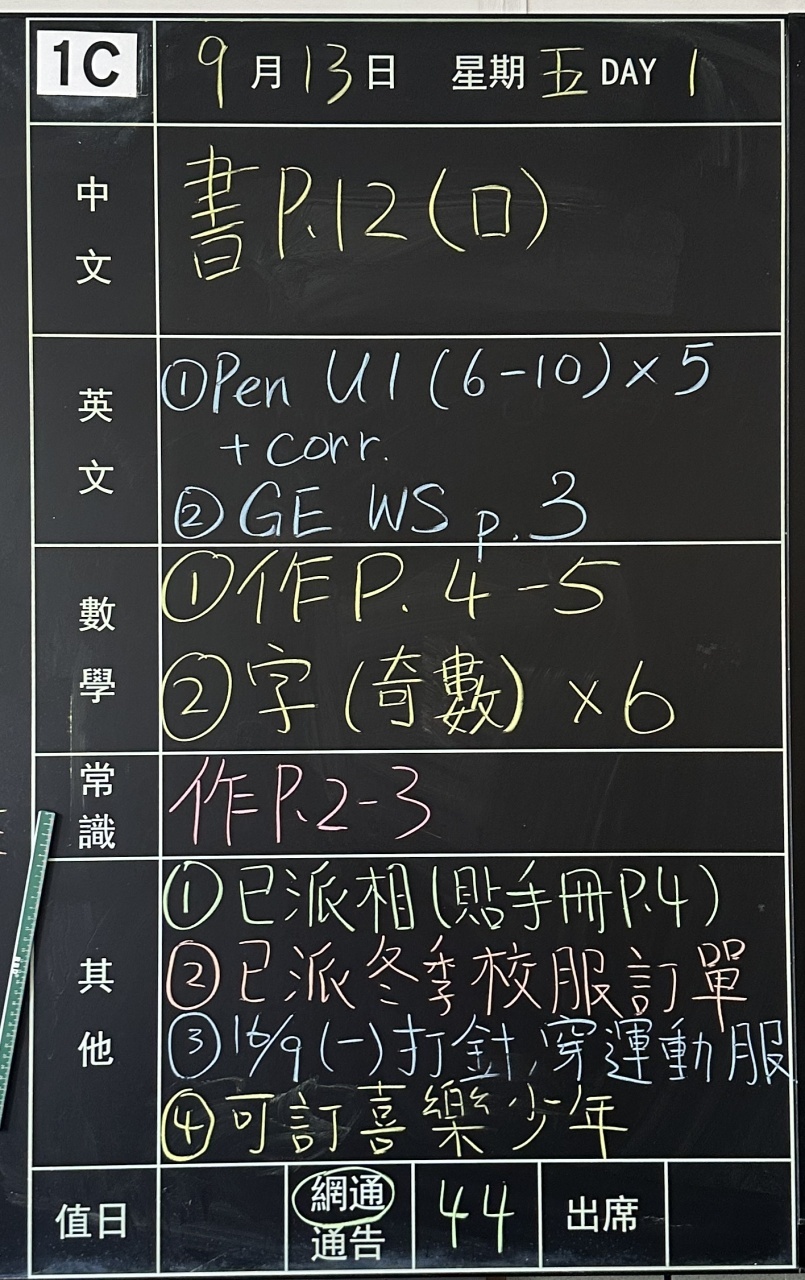 1C 9月13日 星期五 DAY 1
中文 書P.12(口)
英文 ①Pen U1 (6-10)×5
+corr.
②GE WS p.3
數學 ①作P.4-5
②字(奇數)×6
常識 作P.2-3
其他 ①已派相(貼手冊P.4)
②已派冬季校服訂單
③16/9(一)打針,穿運動服
④可訂喜樂少年
值日 網通 44 出席
通告